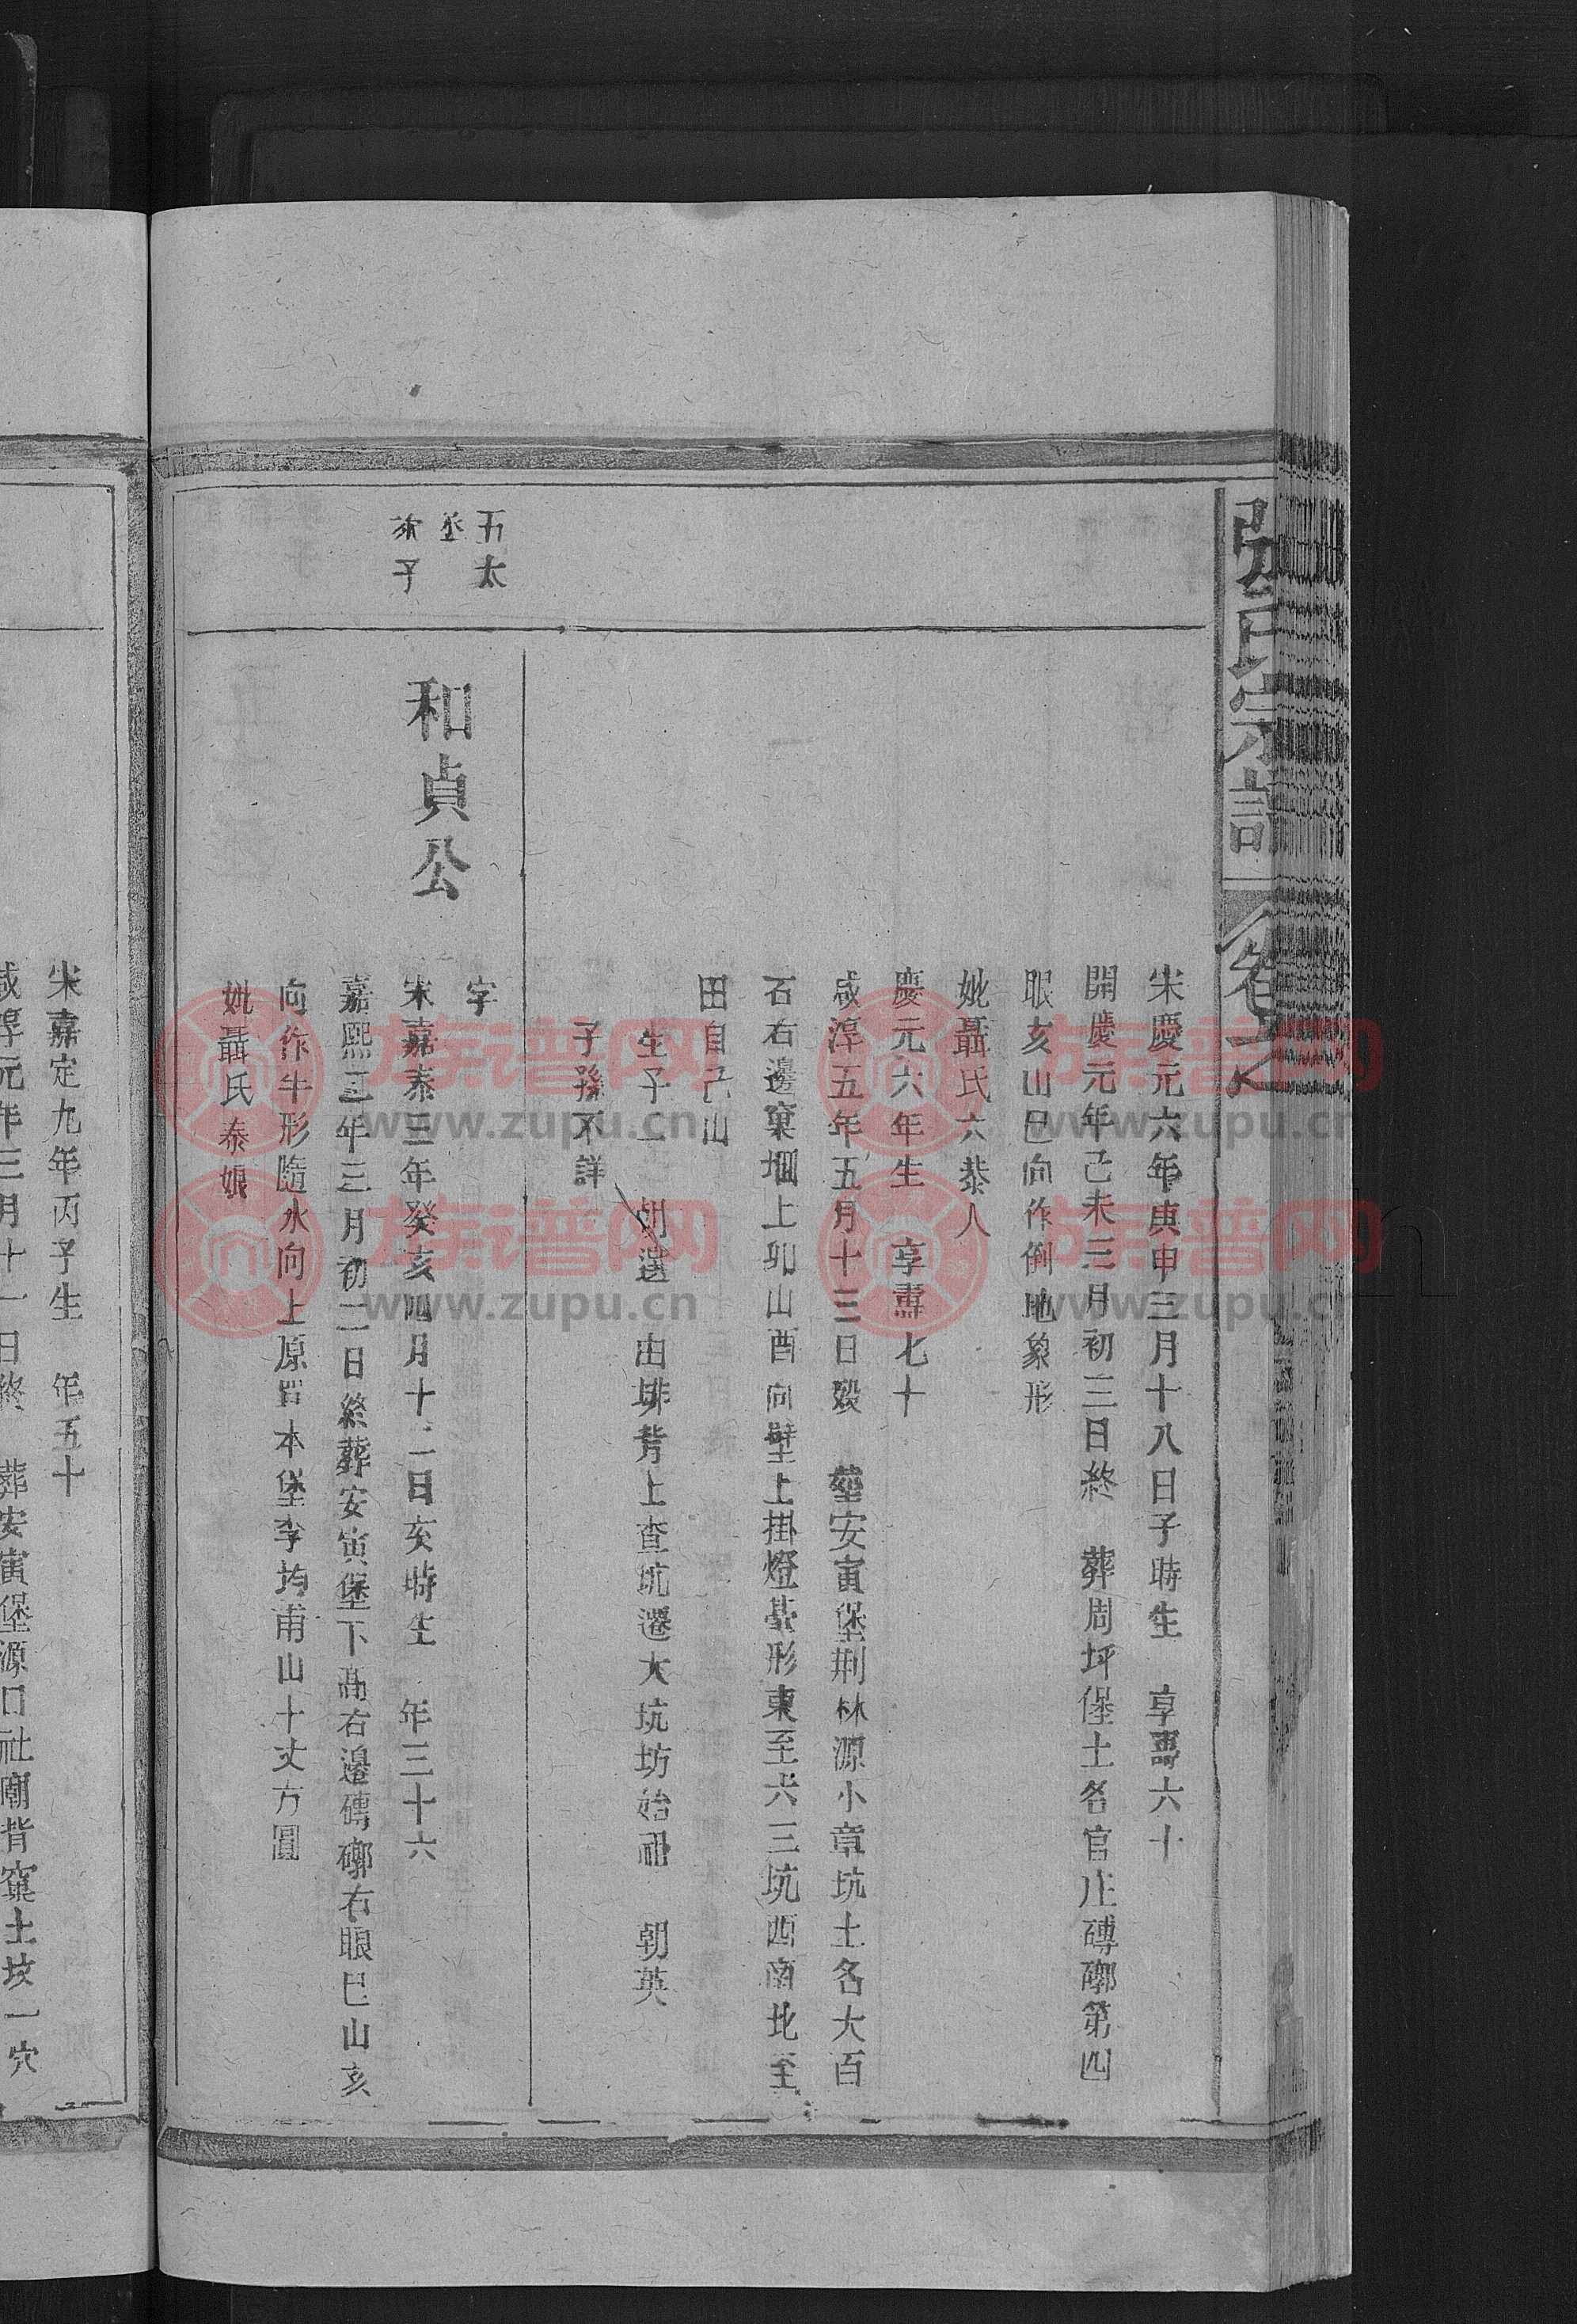 張氏宗譜
卷之
宋慶元六年庚申三月十八日子時生 享壽六十
開慶元年己未三月初三日終 葬周坪堡土名官庄磚槨第四
眼亥山巳向作倒地象形
妣聶氏六恭人
慶元六年生 享壽七十
咸淳五年五月十三日歿 塟安寅堡荆林源小章坑土名大百
石右邊窠堋上卯山酉向壁上掛燈盞形東至六三坑西南北至
田自己山
生子一 朝選 由排背上查坑遷大坑坊始祖 朝英
子孫不詳
五太
子
和貞公
字
宋嘉泰三年癸亥四月十二日亥時生 年三十六
嘉熙三年三月初二日終葬安寅堡下高右邉磚槨右眼巳山亥
向作牛形隨水向上原買本堡李均甫山十丈方圓
妣聶氏泰娘
宋嘉定九年丙子生 年五十
咸淳元年三月十一日終 葬安寅堡源口社廟背窠土坟一穴
族谱网
www.zupu.cn
族谱网
www.zupu.cn
族谱网
www.zupu.cn
族谱网
www.zupu.cn